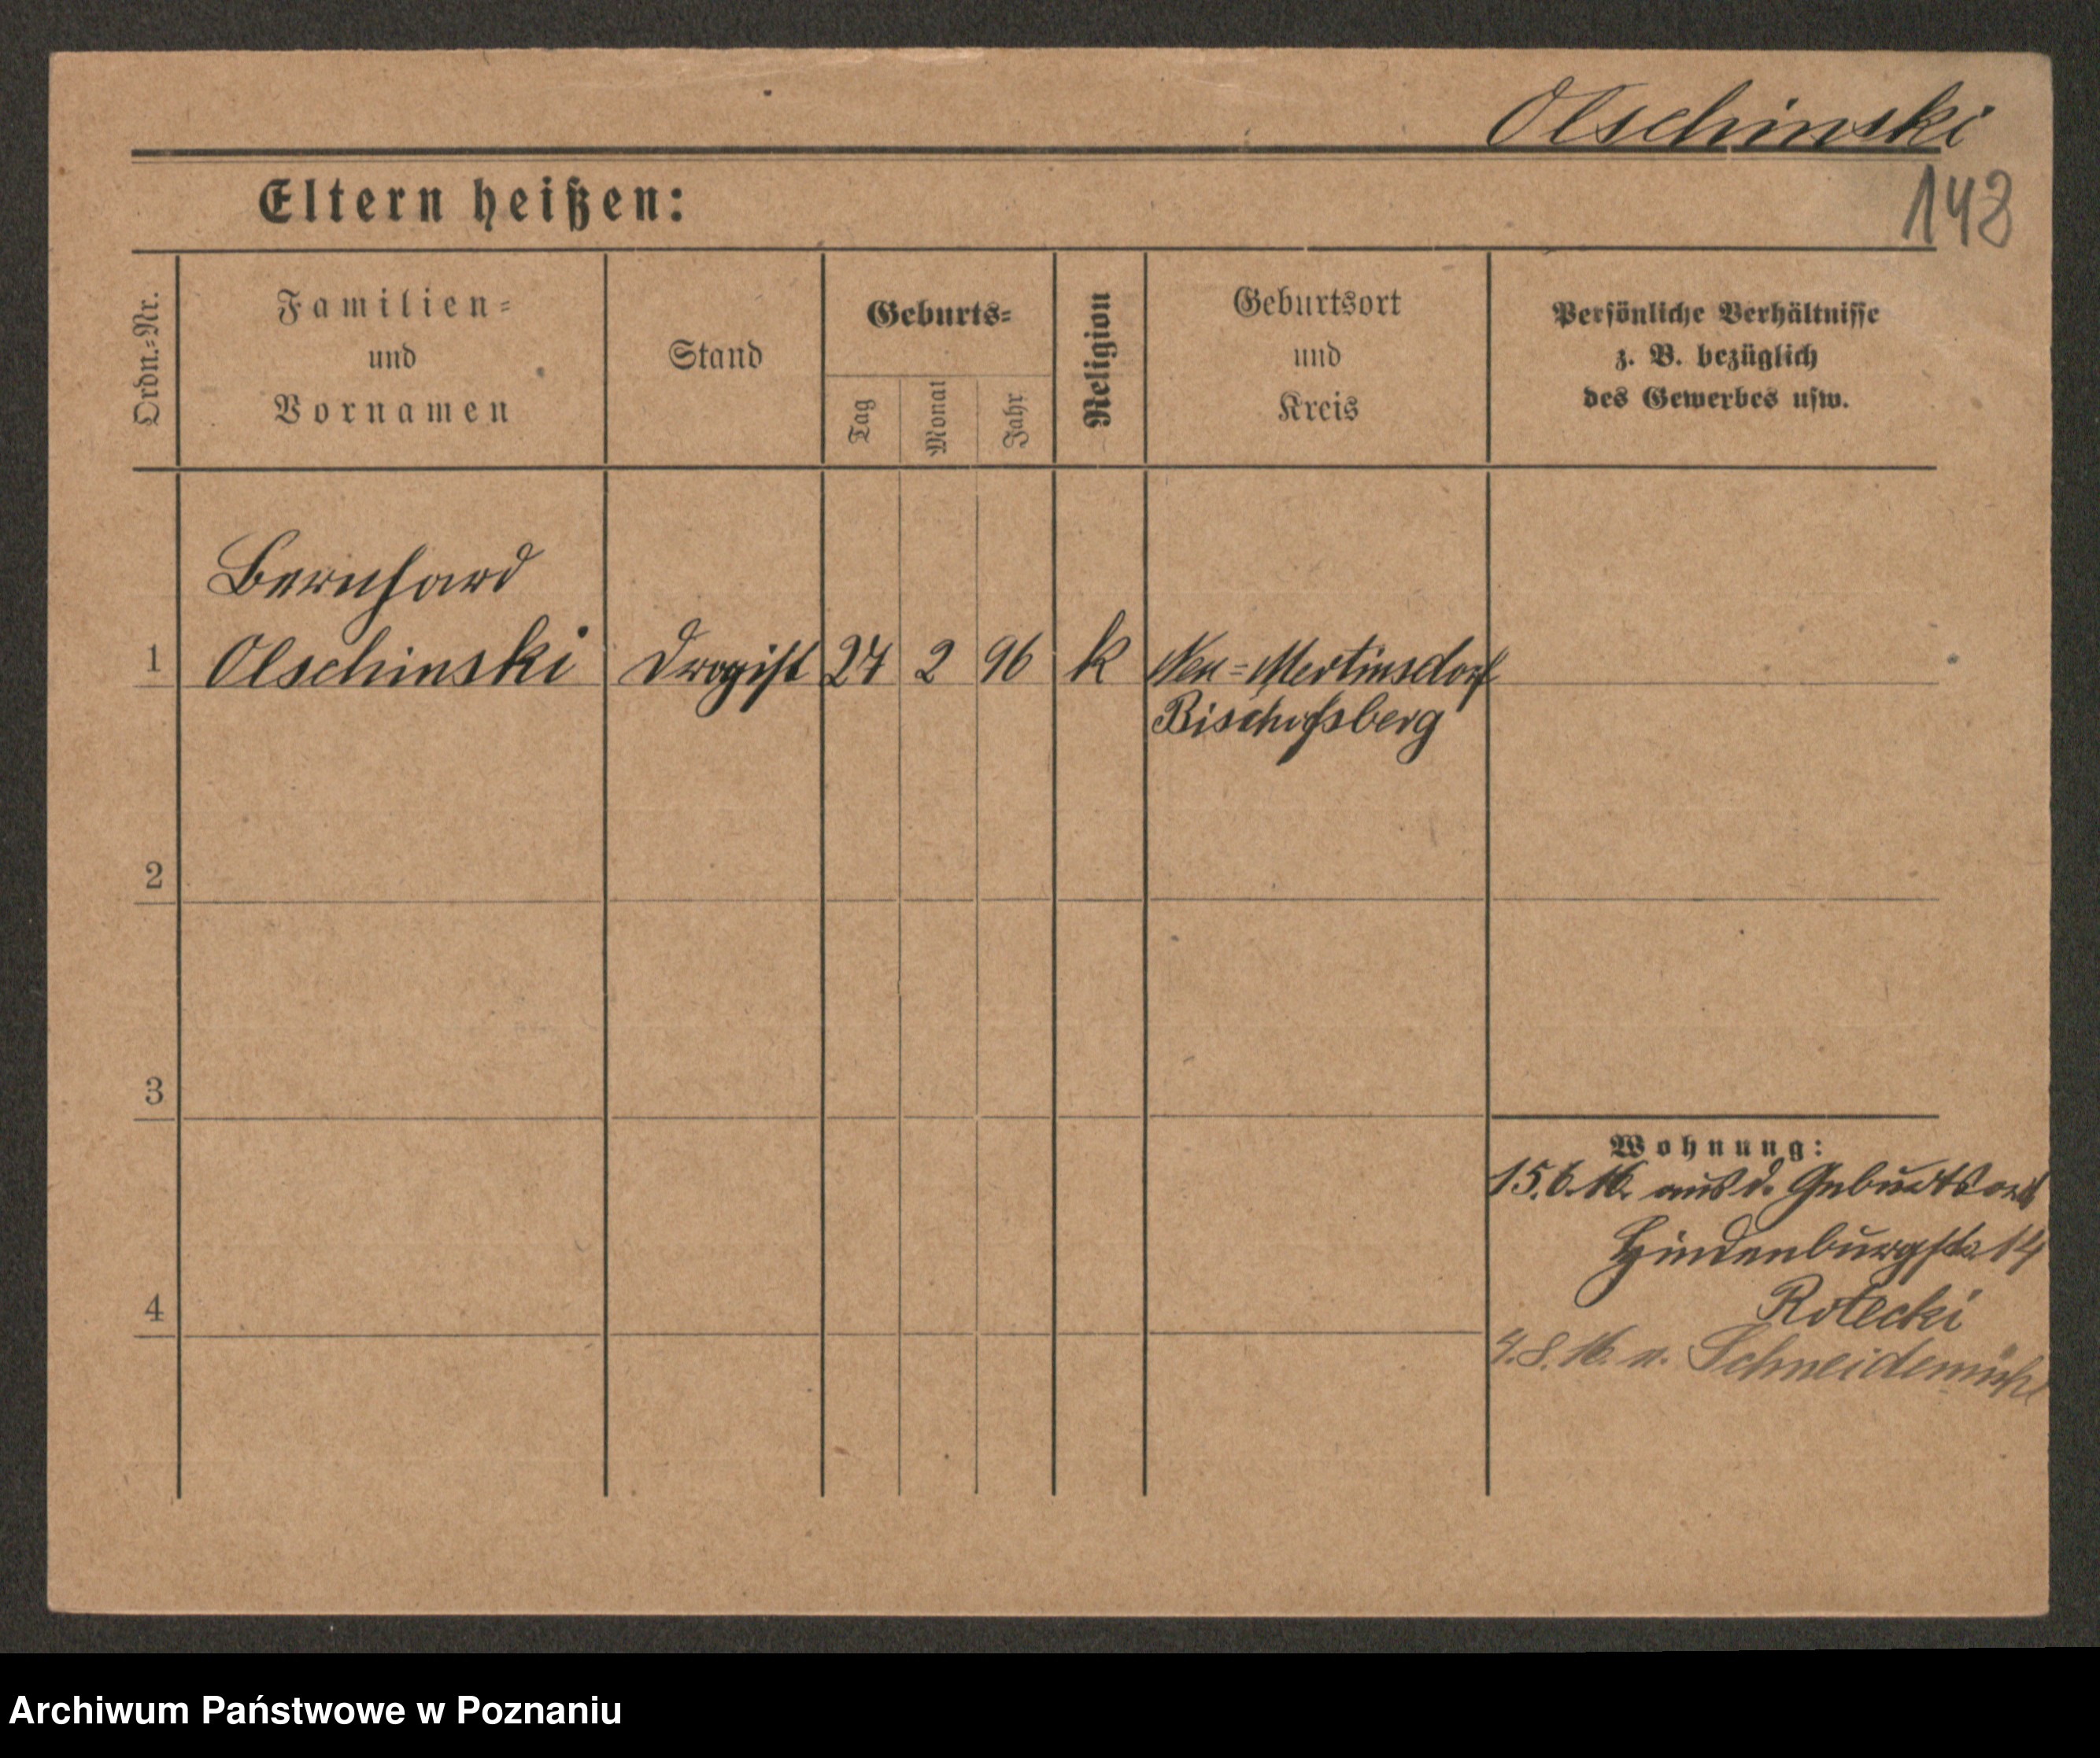 Olschinski
148
Eltern heißen:
Ordn.-Nr.
Familien-
und
Vornamen
Stand
Geburts-
Tag
Monat
Jahr
Religion
Geburtsort
und
Kreis
Persönliche Verhältnisse
z. B. bezüglich
des Gewerbes usw.
Bernhard
1 Olschinski Drogist 24 2 96 k Neu-Mertinsdorf
Bischofsberg
2
3
4
Wohnung:
15.6.16. aus d. Geburtsort
Hindenburgstr 14
Rotecki
4.8.16. n. Schneidemühl
Archiwum Państwowe w Poznaniu